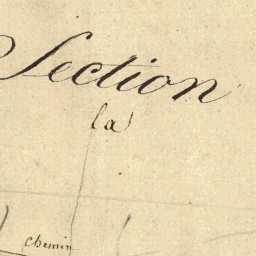 Section
la
chemin